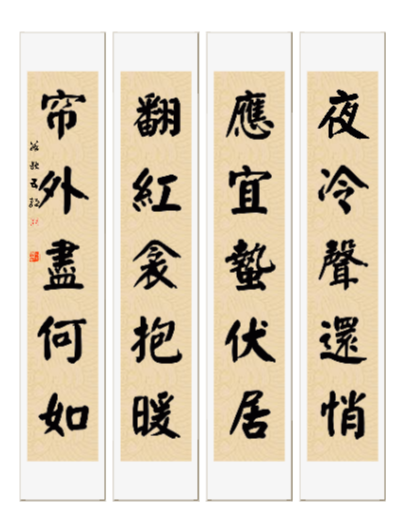 夜冷聲還悄
應宜蟄伏居
翻紅衾抱暖
帘外盡何如